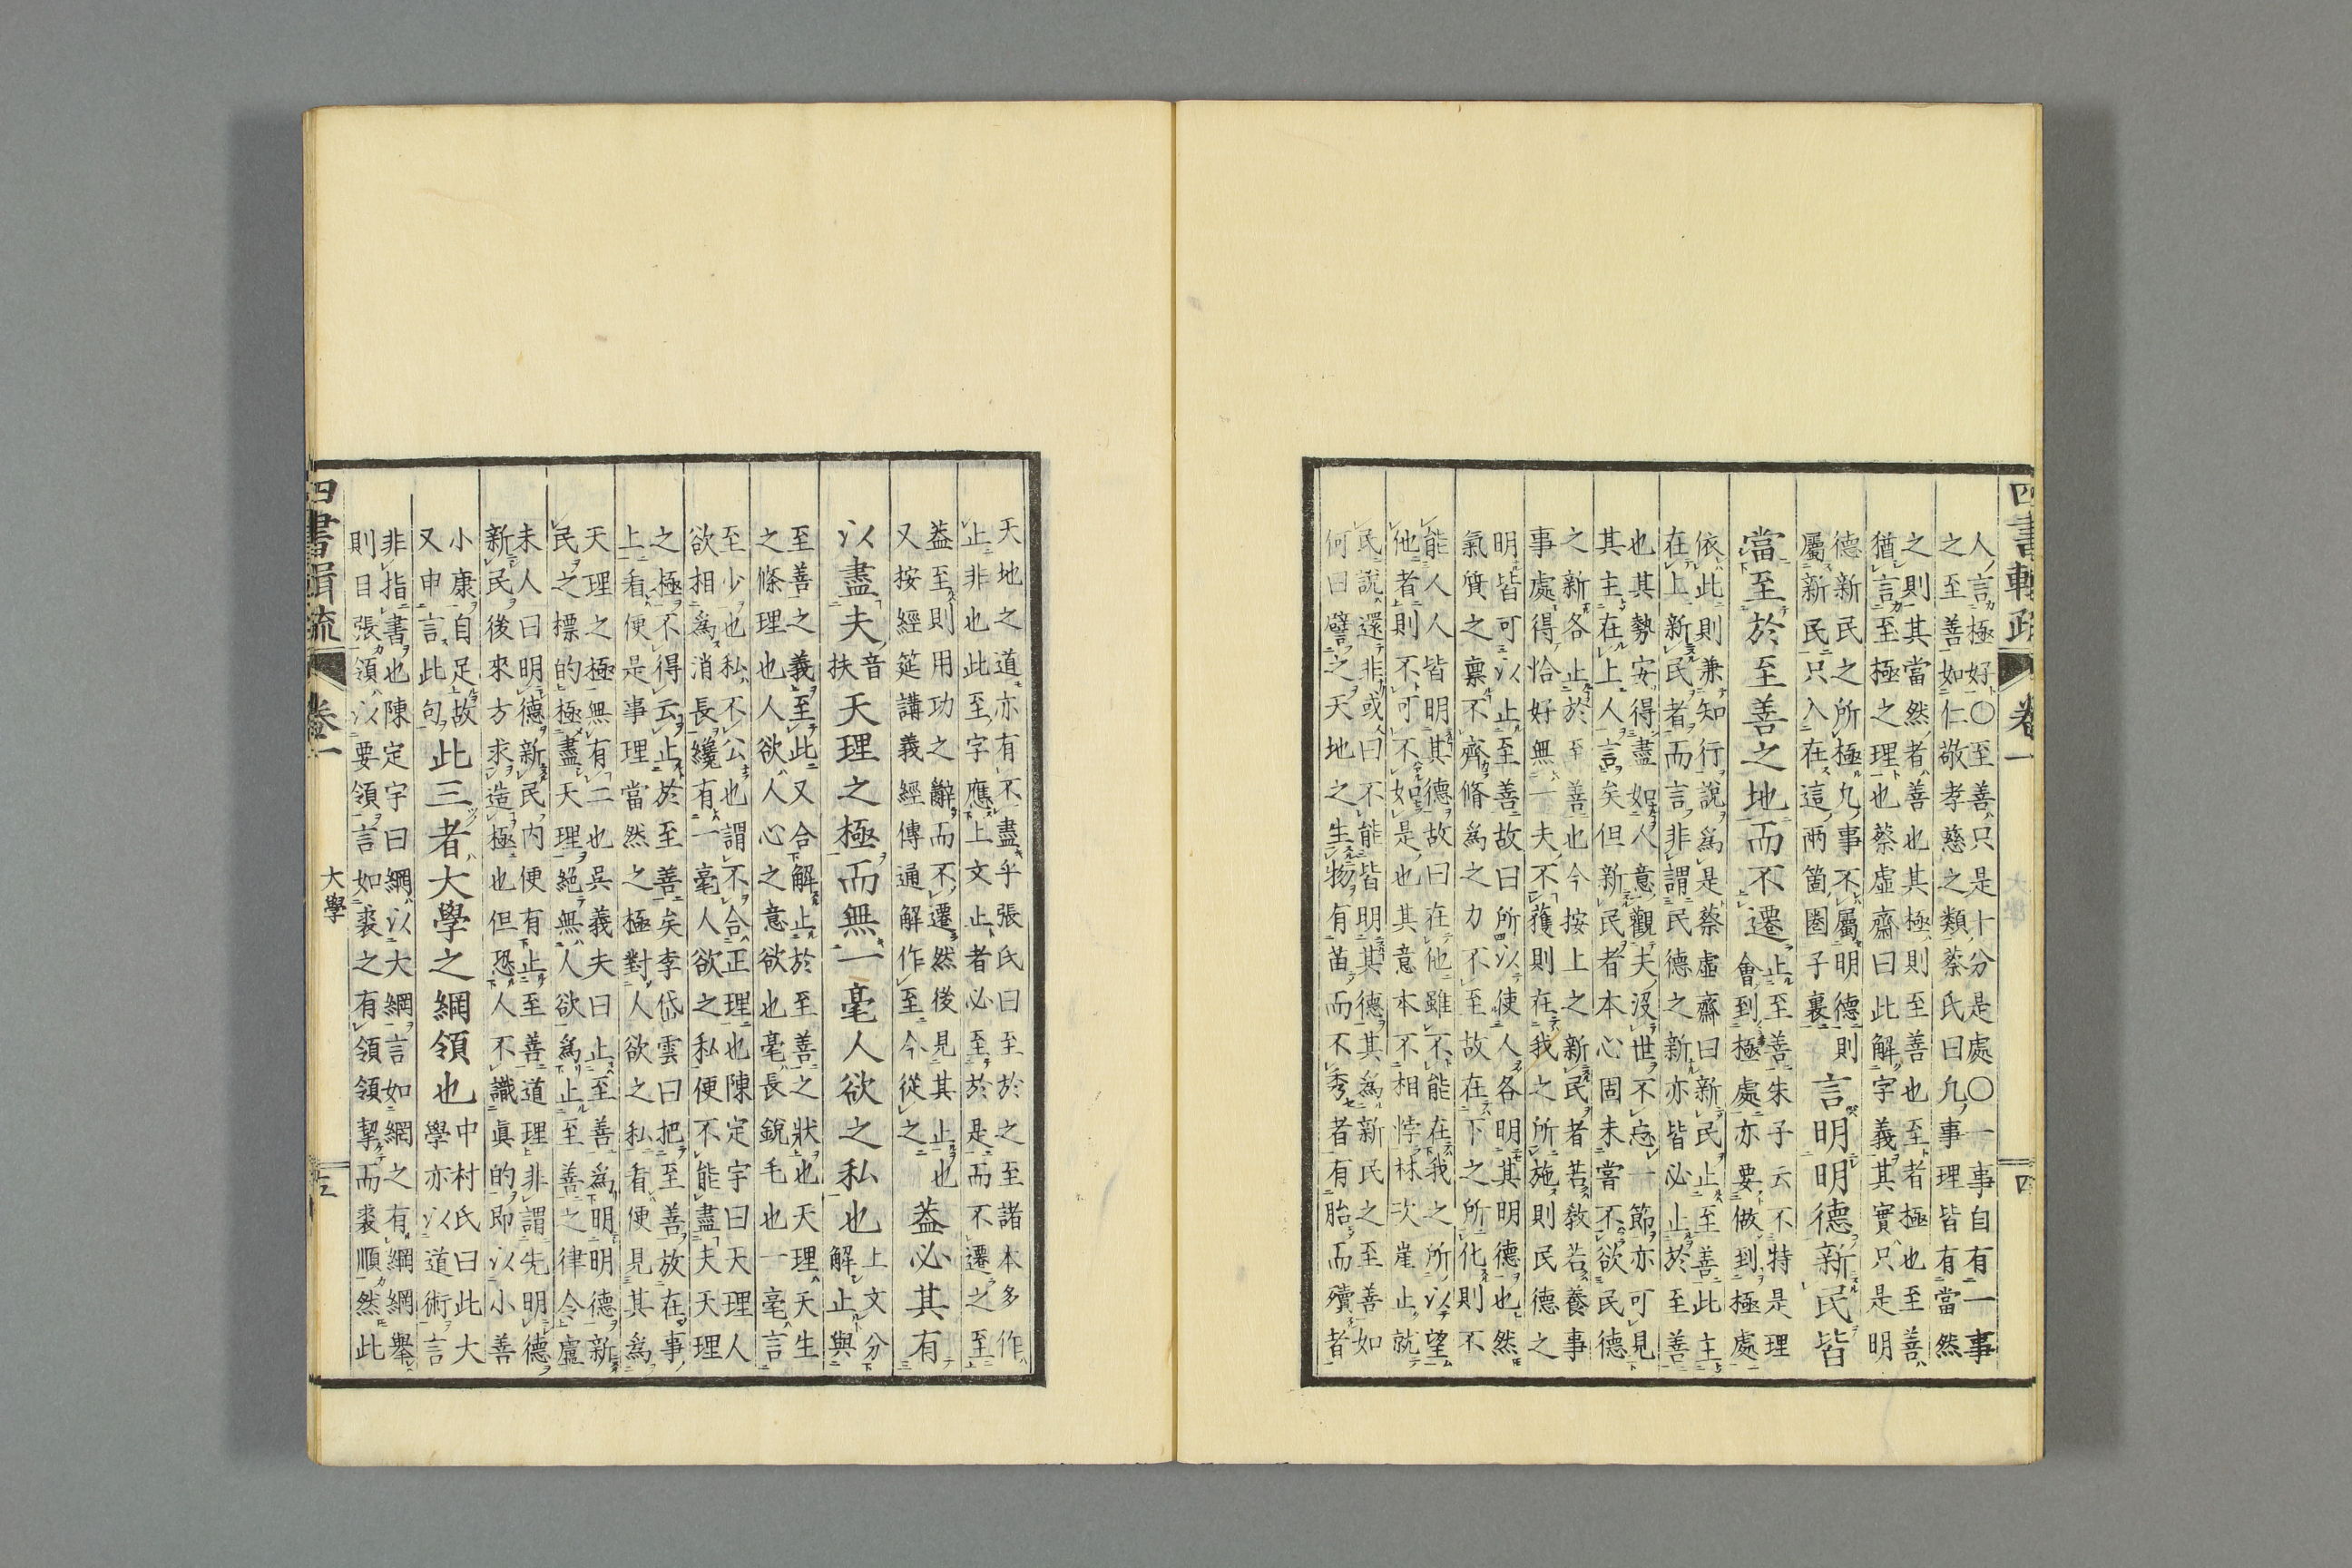 四書輯疏 卷一 四
人言極好○至善只是十分是處○一事自有一事
之至善如仁敬孝慈之類蔡氏曰凡事理皆有當然
之則其當然者善也其極則至善也至者極也至善
猶言至極之理也蔡虛齋曰此解字義其實只是明
德新民之所極凡事不屬明德則
屬新民只入在這兩箇圏子裏
言明明德新民皆
當至於至善之地而不遷
止至善朱子云不特是理
會到極處亦要做到極處
依此則兼知行說爲是蔡虛齋曰新民止至善此主
在上新民者而言非謂民德之新亦皆必止於至善
也其勢安得盡如人意觀夫沒世不忘一節亦可見
其主在上人言矣但新民者本心固未嘗不欲民德
之新各止於至善也今按上之新民者若敎若養事
事處得恰好無一夫不獲則在我之所施則民德之
明皆可以止至善故曰所以使人各明其明德也然
氣質之稟不齊脩爲之力不至故在下之所化則不
能人人皆明其德故曰在他雖不能在我之所以望
他者則不可不如是也其意本不相悖林次崖止就
民說還非或曰不能皆明其德其爲新民之至善如
何曰譬之天地之生物有苗而不秀者有胎而殰者
天地之道亦有不盡乎張氏曰至於之至諸本多作
止非也此至字應上文止者必至於是而不遷之至
蓋至則用功之辭而不遷然後見其止也
又按經筵講義經傳通解作至今從之
蓋必其有
以盡夫
音
扶
天理之極而無一毫人欲之私也
上文分
解止與
至善之義至此又合解止於至善之狀也天理天生
之條理也人欲人心之意欲也毫長銳毛也一毫言
至少也私不公也謂不合正理也陳定宇曰天理人
欲相爲消長纔有一毫人欲之私便不能盡夫天理
之極不得云止於至善矣李岱雲曰把至善放在事
上看便是事理當然之極對人欲之私看便見其爲
天理之極無有二也吳義夫曰止至善爲明明德新
民之標的極盡天理絕無人欲爲止至善之律令盧
未人曰明德新民內便有止至善道理非謂先明德
新民後來方求造極也但恐人不識眞的即以小善
小康自足故
又申言此句
此三者大學之綱領也
中村氏曰此大
學亦以道術言
非指書也陳定宇曰綱以大綱言如網之有綱綱擧
則目張領以要領言如裘之有領領挈而裘順然此
四書輯疏 卷一 大學 三